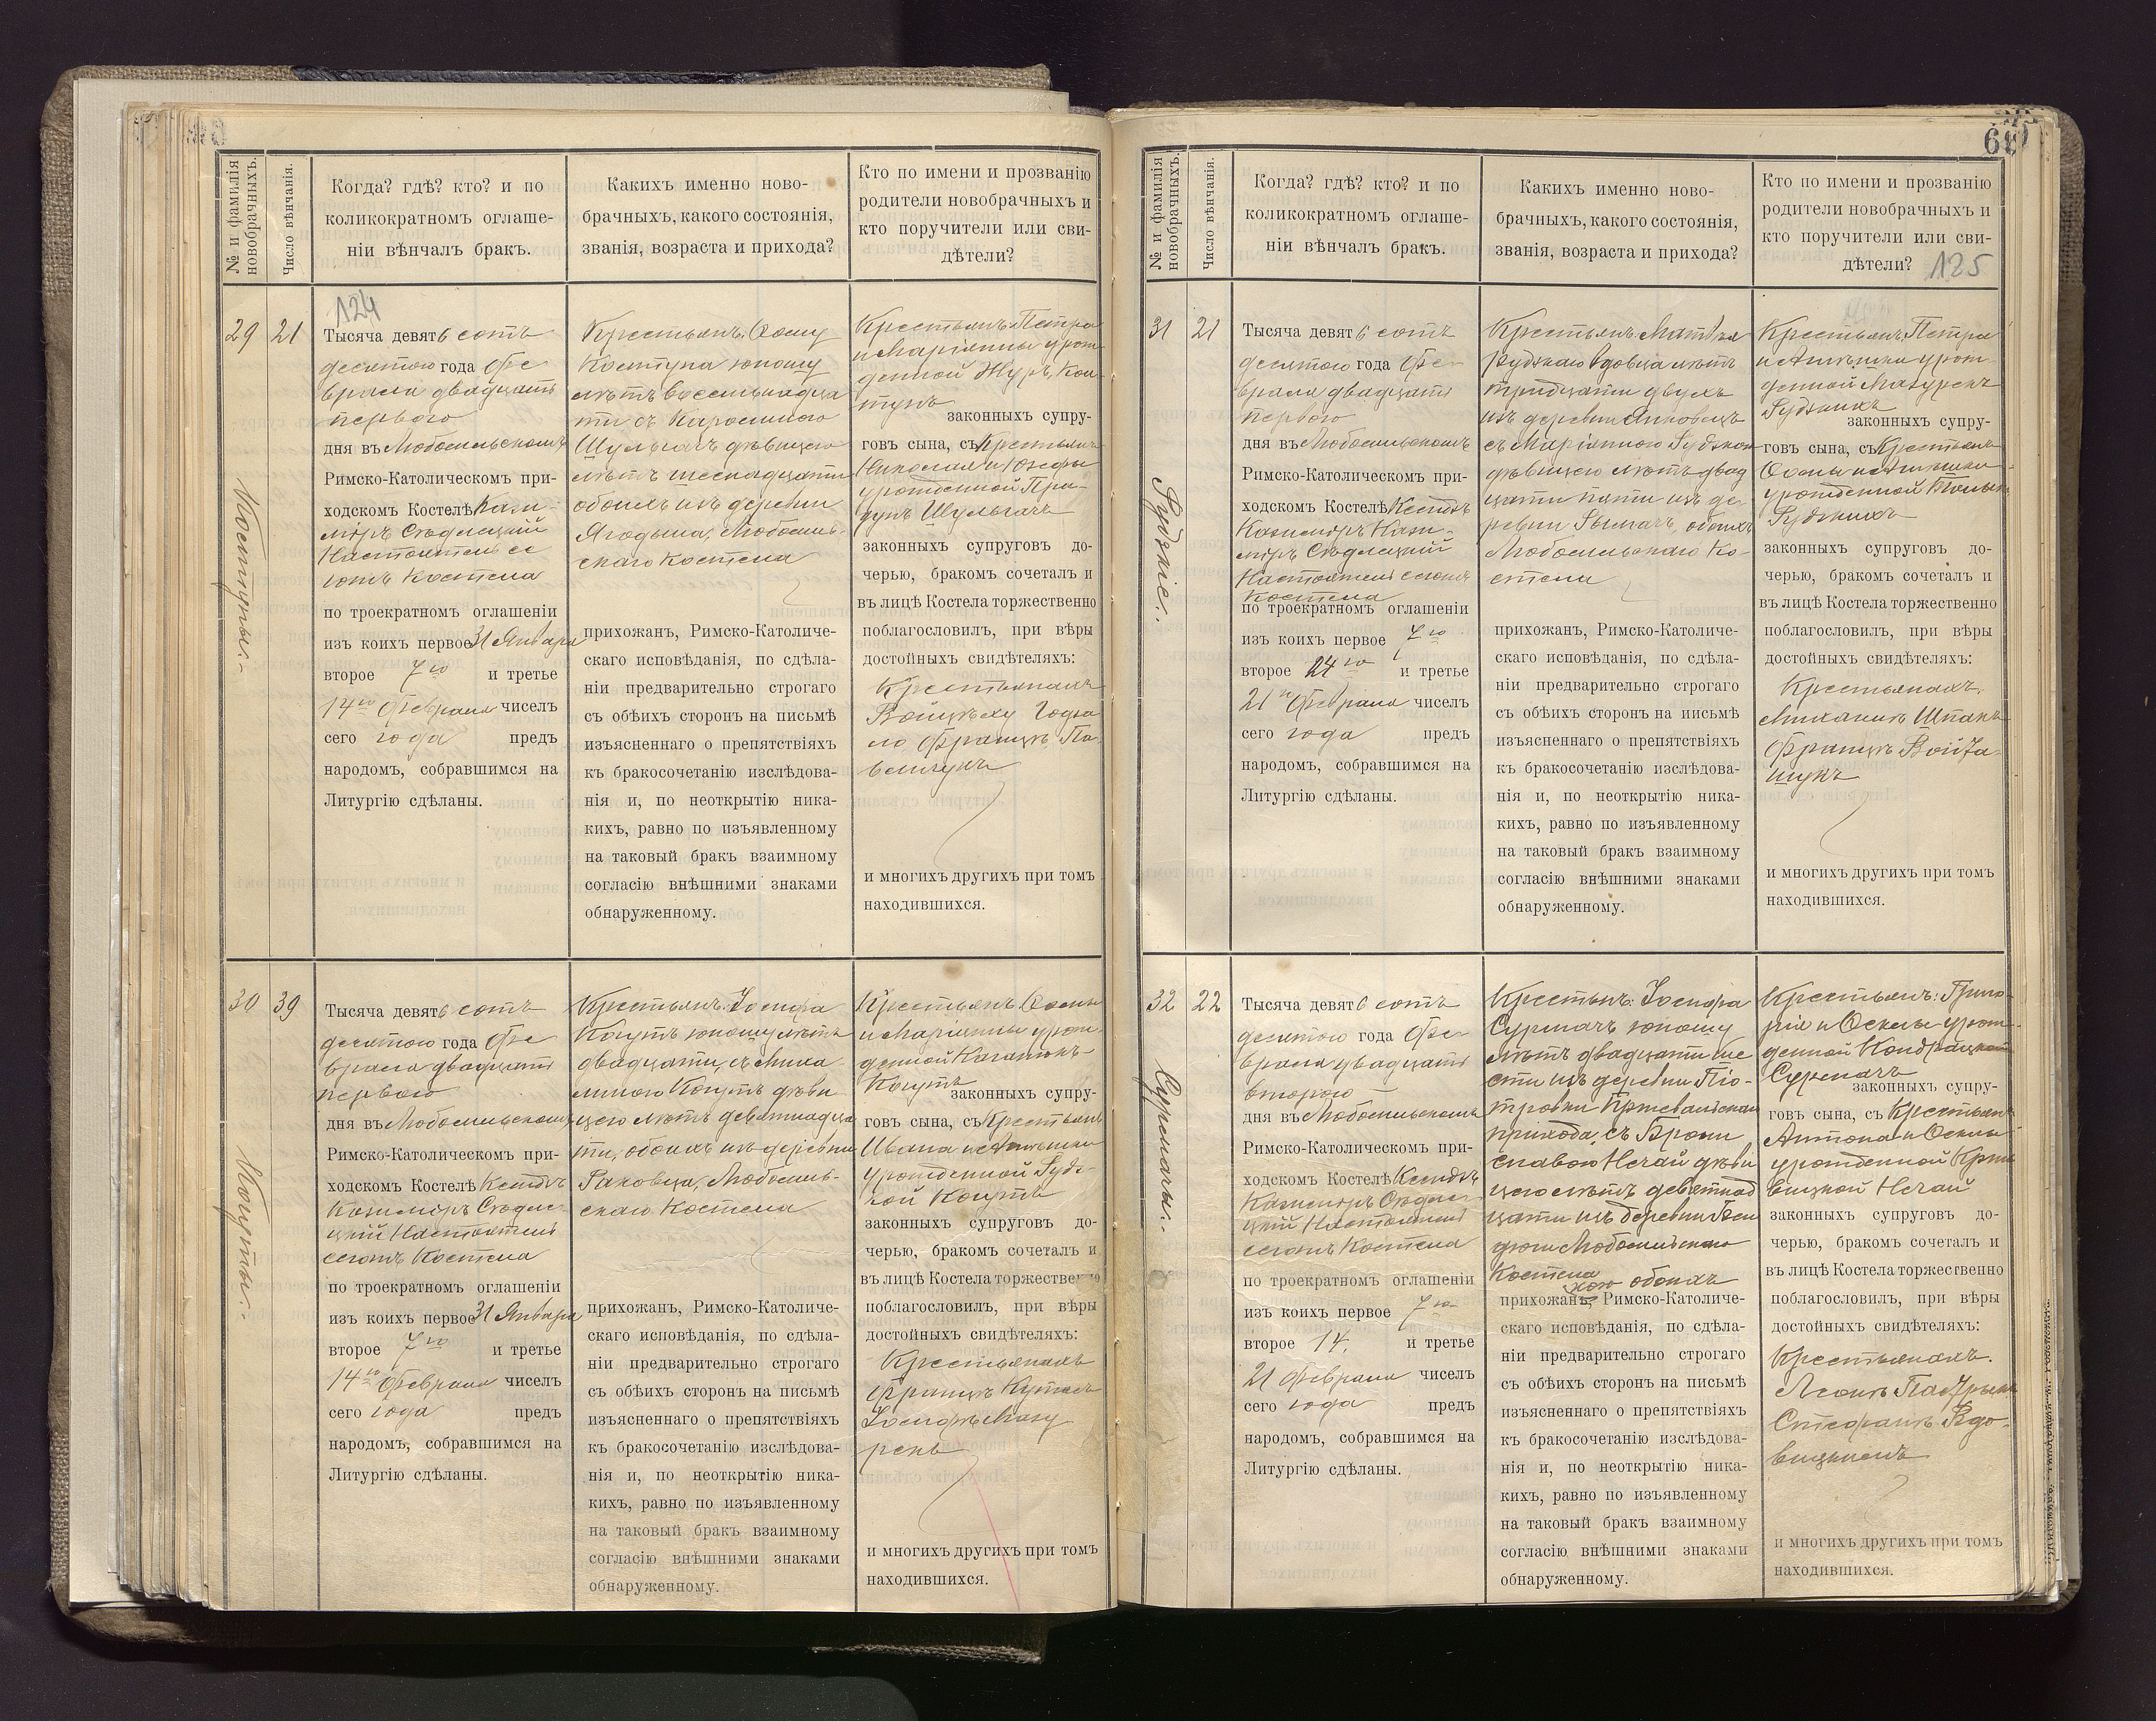 № и фамилія новобрачныхъ.
Число вѣнчанія.
Когда? гдѣ? кто? и по
коликократномъ оглаше-
ніи вѣнчалъ бракъ.
Какихъ именно ново-
брачныхъ, какого состоянія,
званія, возраста и прихода?
Кто по имени и прозванію
родители новобрачныхъ и
кто поручители или сви-
дѣтели?
29
21
124
Тысяча девятьсотъ
десятого года Фе
враля двадцать
первого
дня въ Любомльскомъ
Римско-Католическомъ при-
ходскомъ Костелѣ Кази-
міръ Сѣдлецкій
Настоятель се
гожъ Костела
по троекратномъ оглашеніи
изъ коихъ первое 31 Января
второе 7го и третье
14го Февраля чиселъ
сего года предъ
народомъ, собравшимся на
Литургію сдѣланы.
Крестьянъ: Ѳому
Костуна юношу
лѣтъ восемнадца
ти, съ Каролиною
Шульгачъ дѣвицею
лѣтъ шеснадцати
обоихъ изъ деревни
Ягодына, Любомль-
скаго Костела
прихожанъ, Римско-Католиче-
скаго исповѣданія, по сдѣла-
ніи предварительно строгаго
съ обѣихъ сторонъ на письмѣ
изъясненнаго о препятствіяхъ
къ бракосочетанію изслѣдова-
нія и, по неоткрытію ника-
кихъ, равно по изъявленному
на таковый бракъ взаимному
согласію внѣшними знаками
обнаруженному.
Крестьянъ: Петра
и Маріанны урож
денной Журъ, Кос
тунъ
законныхъ супру-
говъ сына, съ Крестьянъ
Николая и Юзефы
урожденной При-
дунъ Шульгачъ
законныхъ супруговъ до-
черью, бракомъ сочеталъ и
въ лицѣ Костела торжественно
поблагословилъ, при вѣры
достойныхъ свидѣтеляхъ:
Крестьянахъ
Войцѣху
Францъ
и многихъ другихъ при томъ
находившихся.
Костуны.-
30
39
Тысяча девятьсотъ
десятого года Фе
враля двадцать
первого
дня въ Любомльскомъ
Римско-Католическомъ при-
ходскомъ Костелѣ Ксендзъ
Казиміръ Сѣдле-
цкій Настоятель
сегожъ Костела
по троекратномъ оглашеніи
изъ коихъ первое 31 Января
второе 7го и третье
14го Февраля чиселъ
сего года предъ
народомъ, собравшимся на
Литургію сдѣланы.
Крестьянъ: Іосифа
Когутъ юношу лѣтъ
двадцати, съ Миха
линою Когутъ дѣви
цею лѣтъ девятнадца
ти, обоихъ изъ деревни
Раковца, Любомль-
скаго Костела
прихожанъ, Римско-Католиче-
скаго исповѣданія, по сдѣла-
ніи предварительно строгаго
съ обѣихъ сторонъ на письмѣ
изъясненнаго о препятствіяхъ
къ бракосочетанію изслѣдова-
нія и, по неоткрытію ника-
кихъ, равно по изъявленному
на таковый бракъ взаимному
согласію внѣшними знаками
обнаруженному.
Крестьянъ Ѳомы
и Маріанны урож-
денной
Когутъ
законныхъ супру-
говъ сына, съ Крестьянъ
Ивана и Агнѣшки
урожденной Рудз-
кой Когутъ
законныхъ супруговъ до-
черью, бракомъ сочеталъ и
въ лицѣ Костела торжественно
поблагословилъ, при вѣры
достойныхъ свидѣтеляхъ:
Крестьянахъ
Францъ
Іосифъ Мазу
рекъ
и многихъ другихъ при томъ
находившихся.
Когуты.-
68
№ и фамилія новобрачныхъ.
Число вѣнчанія.
Когда? гдѣ? кто? и по
коликократномъ оглаше-
ніи вѣнчалъ бракъ.
Какихъ именно ново-
брачныхъ, какого состоянія,
званія, возраста и прихода?
Кто по имени и прозванію
родители новобрачныхъ и
кто поручители или сви-
дѣтели? 125
31
21
Тысяча девятьсотъ
десятого года Фе-
враля двадцать
первого
дня въ Любомльскомъ
Римско-Католическомъ при-
ходскомъ Костелѣ Ксендзъ
Казиміръ Кази-
міръ Сѣдлецкій
Настоятель сегожъ
Костела
по троекратномъ оглашеніи
изъ коихъ первое 7го
второе 14го и третье
21го Февраля чиселъ
сего года предъ
народомъ, собравшимся на
Литургію сдѣланы.
Крестьянъ: Матвѣя
Рудзкаго вдовца лѣтъ
тридцати двухъ
изъ деревни
съ Маріянною Рудзкою
дѣвицею лѣтъ двад
цати пяти изъ де-
ревни Рымачъ, обоихъ
Любомльскаго Ко-
стела
прихожанъ, Римско-Католиче-
скаго исповѣданія, по сдѣла-
ніи предварительно строгаго
съ обѣихъ сторонъ на письмѣ
изъясненнаго о препятствіяхъ
къ бракосочетанію изслѣдова-
нія и, по неоткрытію ника-
кихъ, равно по изъявленному
на таковый бракъ взаимному
согласію внѣшними знаками
обнаруженному.
Крестьянъ, Петра
и Агнѣшки урож-
денной Мазурекъ
Рудзкихъ
законныхъ супру-
говъ сына, съ Крестьянъ
Ѳомы и Агнѣшки
урожденной
Рудзкихъ
законныхъ супруговъ до-
черью, бракомъ сочеталъ и
въ лицѣ Костела торжественно
поблагословилъ, при вѣры
достойныхъ свидѣтеляхъ:
Крестьянахъ,
Михаилъ Шпакъ
Францъ Войта-
щукъ
и многихъ другихъ при томъ
находившихся.
Рудзкіе.-
32
22
Тысяча девятьсотъ
десятого года Фе-
враля двадцать
второго
дня въ Любомльскомъ
Римско-Католическомъ при-
ходскомъ Костелѣ Ксендзъ
Казиміръ Сѣдле-
цкій Настоятель
сегожъ Костела
по троекратномъ оглашеніи
изъ коихъ первое 7го
второе 14. и третье
21 Февраля чиселъ
сего года предъ
народомъ, собравшимся на
Литургію сдѣланы.
Крестьянъ: Іосифа
Сурмачъ юношу
лѣтъ двадцати ше
сти изъ деревни Піо-
тровки
прихода, съ Брони
славою Нечай дѣви
цею лѣтъ девятнад
цати изъ деревни
Любомльскаго
Костела обоихъ
прихожанъ, Римско-Католиче-
скаго исповѣданія, по сдѣла-
ніи предварительно строгаго
съ обѣихъ сторонъ на письмѣ
изъясненнаго о препятствіяхъ
къ бракосочетанію изслѣдова-
нія и, по неоткрытію ника-
кихъ, равно по изъявленному
на таковый бракъ взаимному
согласію внѣшними знаками
обнаруженному.
Крестьянъ: Григо-
рія и Ѳеклы урож-
денной Кондрацкой
Сурмачъ
законныхъ супру-
говъ сына, съ Крестьянъ
Антона и Ѳеклы
урожденной
Нечай
законныхъ супруговъ до-
черью, бракомъ сочеталъ и
въ лицѣ Костела торжественно
поблагословилъ, при вѣры
достойныхъ свидѣтеляхъ:
Крестьянахъ.
Леонъ
Стефанъ Вдо-
вицкимъ
и многихъ другихъ при томъ
находившихся.
Сурмачы.-